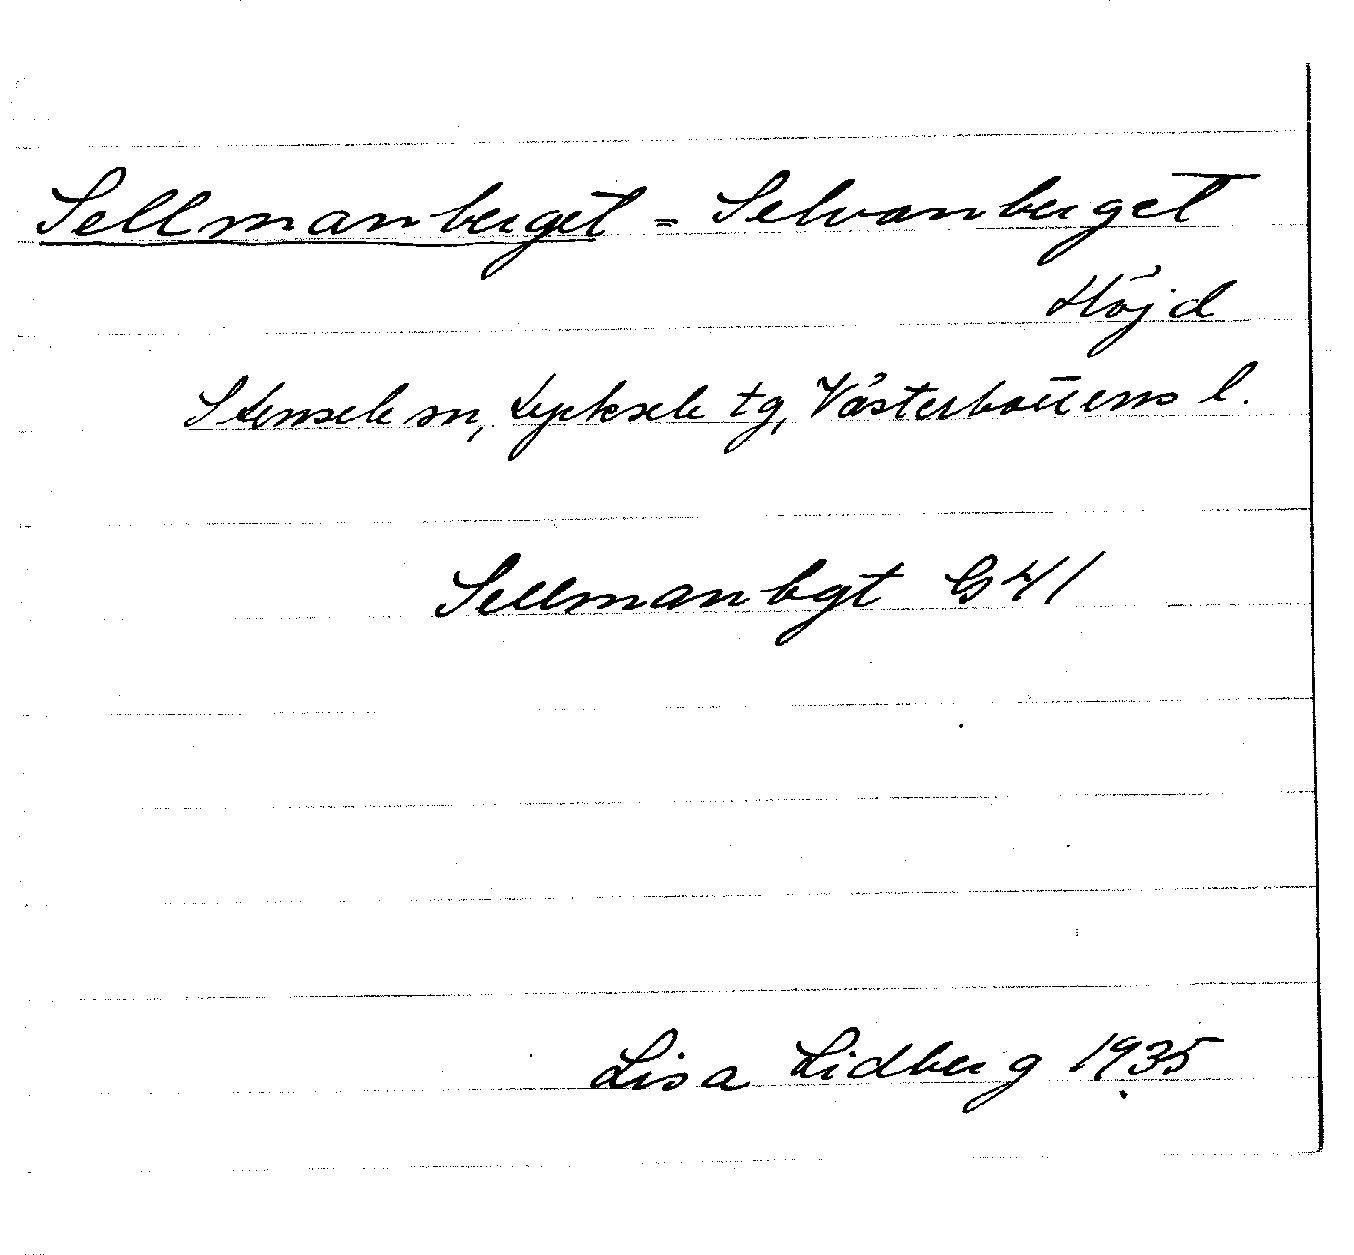 Sellmanberget = Selvanberget
Höjd
Stensele sn, Lycksele tg, Västerbottens l.
Sellmanbgt G41
Lisa Lidberg 1935